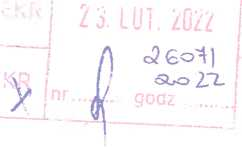 EKR
23. LUT. 2022
26071
2022
KR
nr ........ godz ........